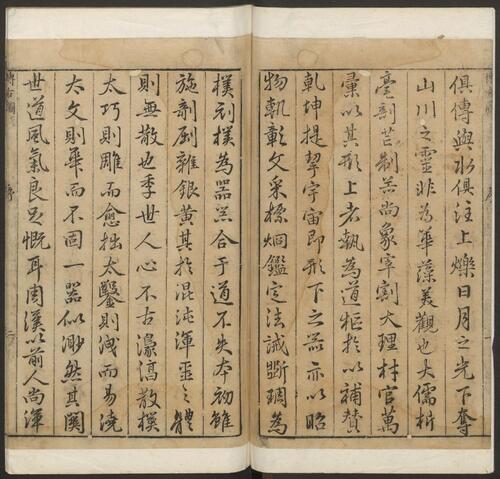 俱傳與水俱注上爍日月之光下奪
山川之靈非為華藻美觀也大儒析
毫剖芒制器尚象宰割大理材官萬
彙以其形上者執為道樞於以補贊
乾坤提挈宇宙即形下之器亦以昭
物軌彰文采標烱鑑定法誡斲琱為
樸刻樸為器合于道不失本初雖
施剞劂雜銀黃其於混沌渾噩之體
則無散也季世人心不古淳散樸
太巧則雕而愈拙太鑿則洩而易澆
太文則華而不固一器似渺然其關
世道風氣良足慨耳周漢以前人尚渾
博古圖 序 二